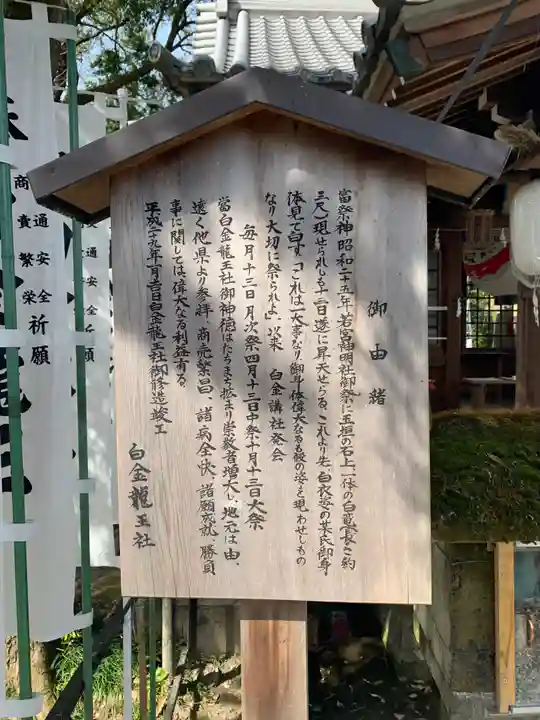 御由緒
當祭神昭和二十五年、若宮神明社御祭に玉垣の石上、一体の白竜(長さ約
三八)現せられしも十三日遂に昇天せらる、これより先、白衣姿の某氏御身
体見て曰す、「これは一大事なり御身体偉大なるも仮の姿を現わせしもの
なり大切に祭られよ」以来 白金講社発会
毎月十三日月次祭四月十三日中祭十月十三日大祭
當白金龍王社御神徳はたちまち拡まり崇敬者増大し、地元は由、
遠く他県より参拝、商売繁昌、諸病全快、諸願成就、勝負
事に関しては、偉大なる利益有る。
平成二九年一月吉日白金龍王社御修造竣工
白金龍王社
交通安全
商売繁栄
祈願
通安全
商貴繁栄
祈願